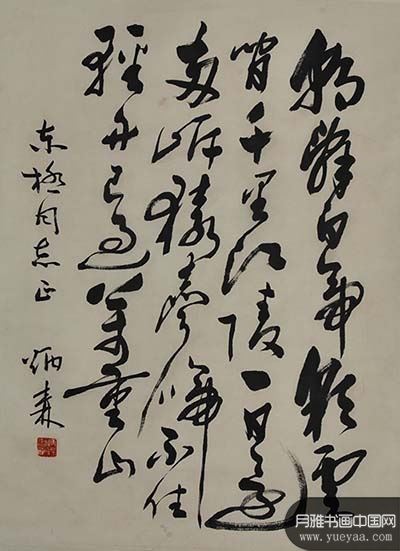 朝辭白帝彩雲
間千里江陵一日還
兩岸猿聲啼不住
輕舟已過萬重山
东極同志正 炳森
月雅书画中国网
www.yueyaa.com